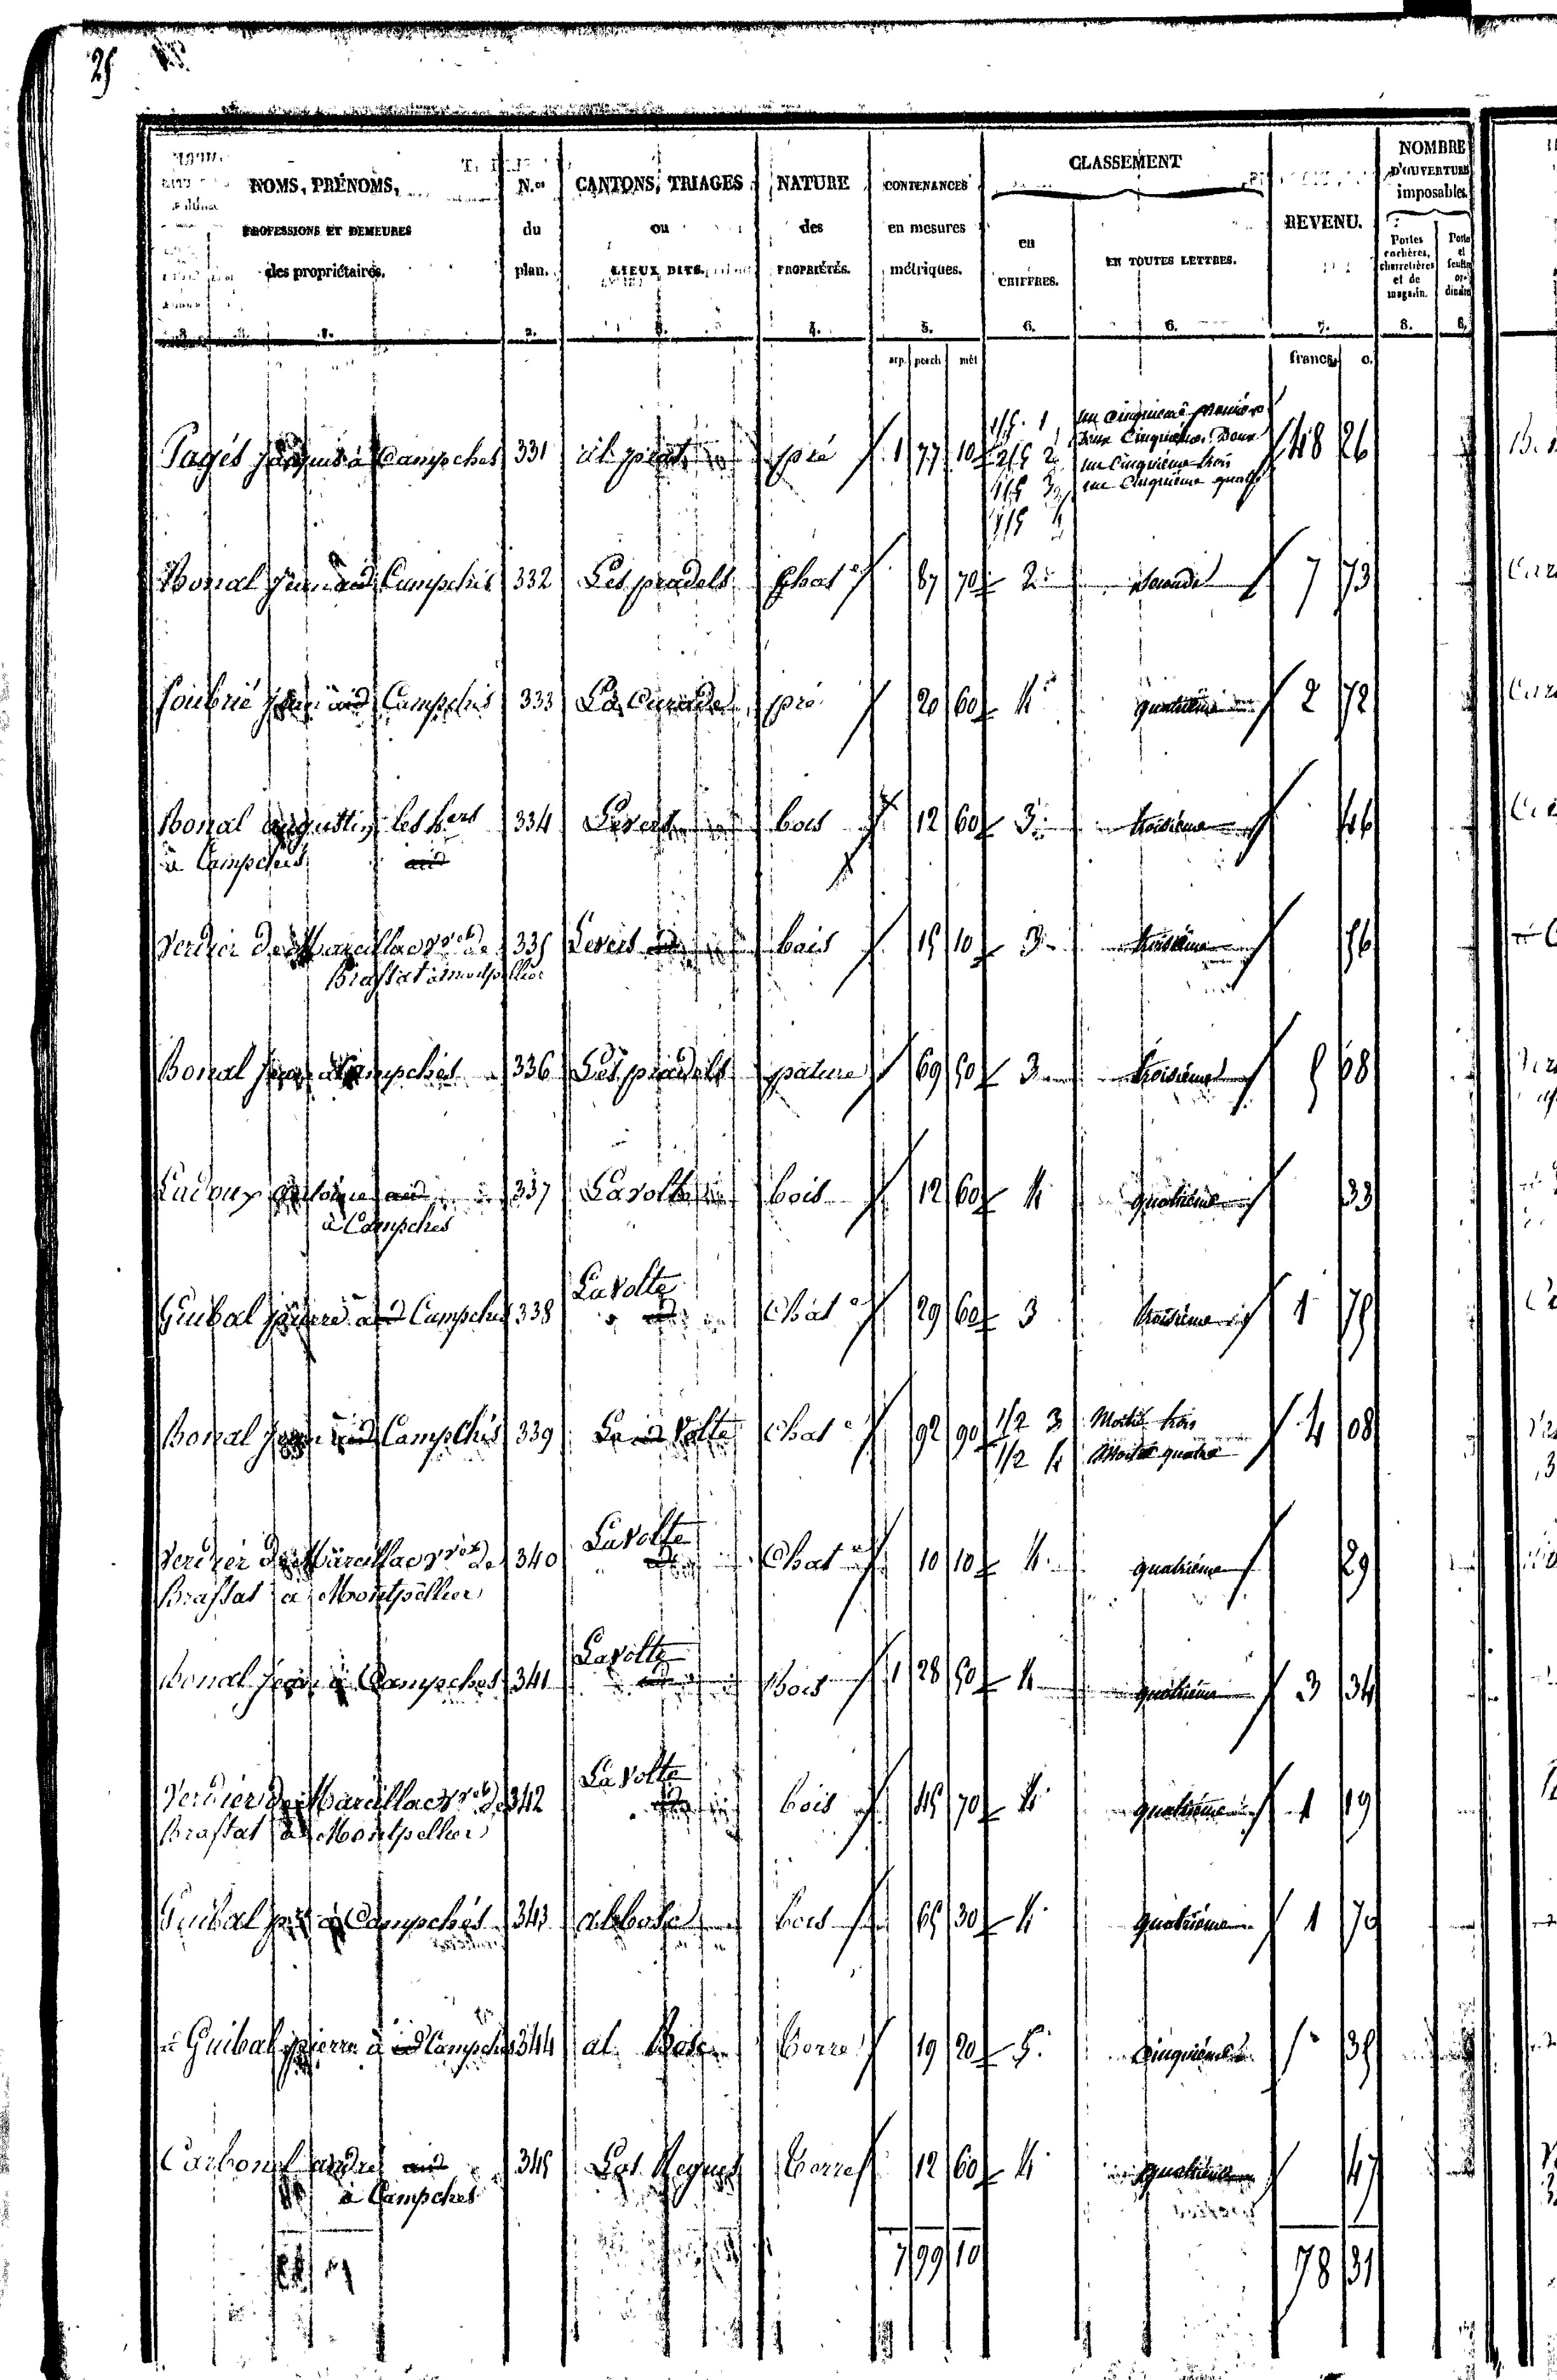 25
NOMS, PRÉNOMS, PROFESSIONS ET DEMEURES des propriétaires. 1.
N.os du plan. 2.
CANTONS, TRIAGES ou LIEUX DITS. 3.
NATURE des PROPRIÉTÉS. 4.
CONTENANCES en mesures métriques. 5.
CLASSEMENT
en CHIFFRES. 6.
EN TOUTES LETTRES. 6.
REVENU. 7.
NOMBRE D'OUVERTURES imposables.
Portes cochères, charretières et de magasin. 8.
arp. perch mèt francs c.
Pagés à Campches 331 pré 1 77 10 1/5 1 un cinquième 48 26
2/5 2 Deux Cinquième Deux
1/5 3 un Cinquième trois
1/5 4 un Cinquième quatre
Bonal Jean Campchès 332 Les pradels Chat 87 70 2 seconde 7 73
Campchès 333 pré 20 60 4 quatrième 2 72
Bonal augustin les hers 334 bois 12 60 3 troisième 46
à Campchès
Verdier de Marcillac de 335 bois 15 10 3 troisième 56
Brassat à montpellier
Bonal Jean à Campchés 336 Les pradels pature 69 50 3 troisième 5 68
Ladoux antoine 337 La volte bois 12 60 4 quatrième 33
à Campches
Guibal pierre à Campches 338 La Volte Chat 29 60 3 troisième 1 75
Bonal Jean Campchès 339 La Volte Chat 92 90 1/2 3 Moitié trois 4 08
1/2 4 Moitié quatre
Verdier de Marcillac de 340 La Volte Chat 10 10 4 quatrième 29
Brassat à Montpellier
Bonal Jean à Campches 341 La volte Bois 1 28 50 4 quatrième 3 34
Verdier de Marcillac de 342 La Volte bois 45 70 4 quatrième 1 19
Brassat à Montpellier
Guibal à Campchés 343 bois 65 30 4 quatrième 1 70
Guibal pierre à Campches 344 al terre 19 20 5 cinquième 35
andré 345 terre 12 60 4 quatrième 47
à Campches
7 99 10 78 31